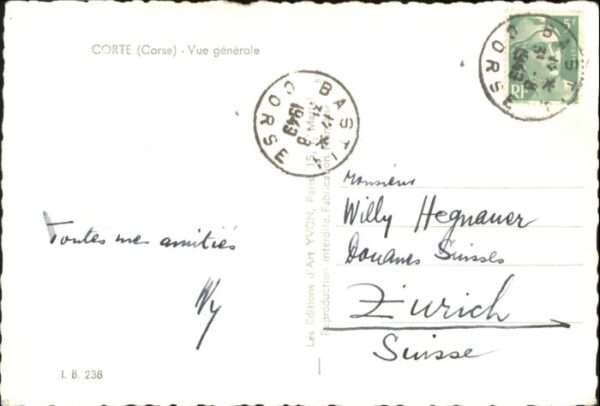 CORTE (Corse) - Vue générale
Toutes mes amitiés
Wy
I. B. 238
Les Editions d'Art YVON, Paris, 15,
Reproduction interdite. Fabrication
BASTIA
CORSE
1949
5F
RF
BASTIA
CORSE
1949
Monsieur
Willy Hegnauer
Douanes Suisses
Zurich
Suisse